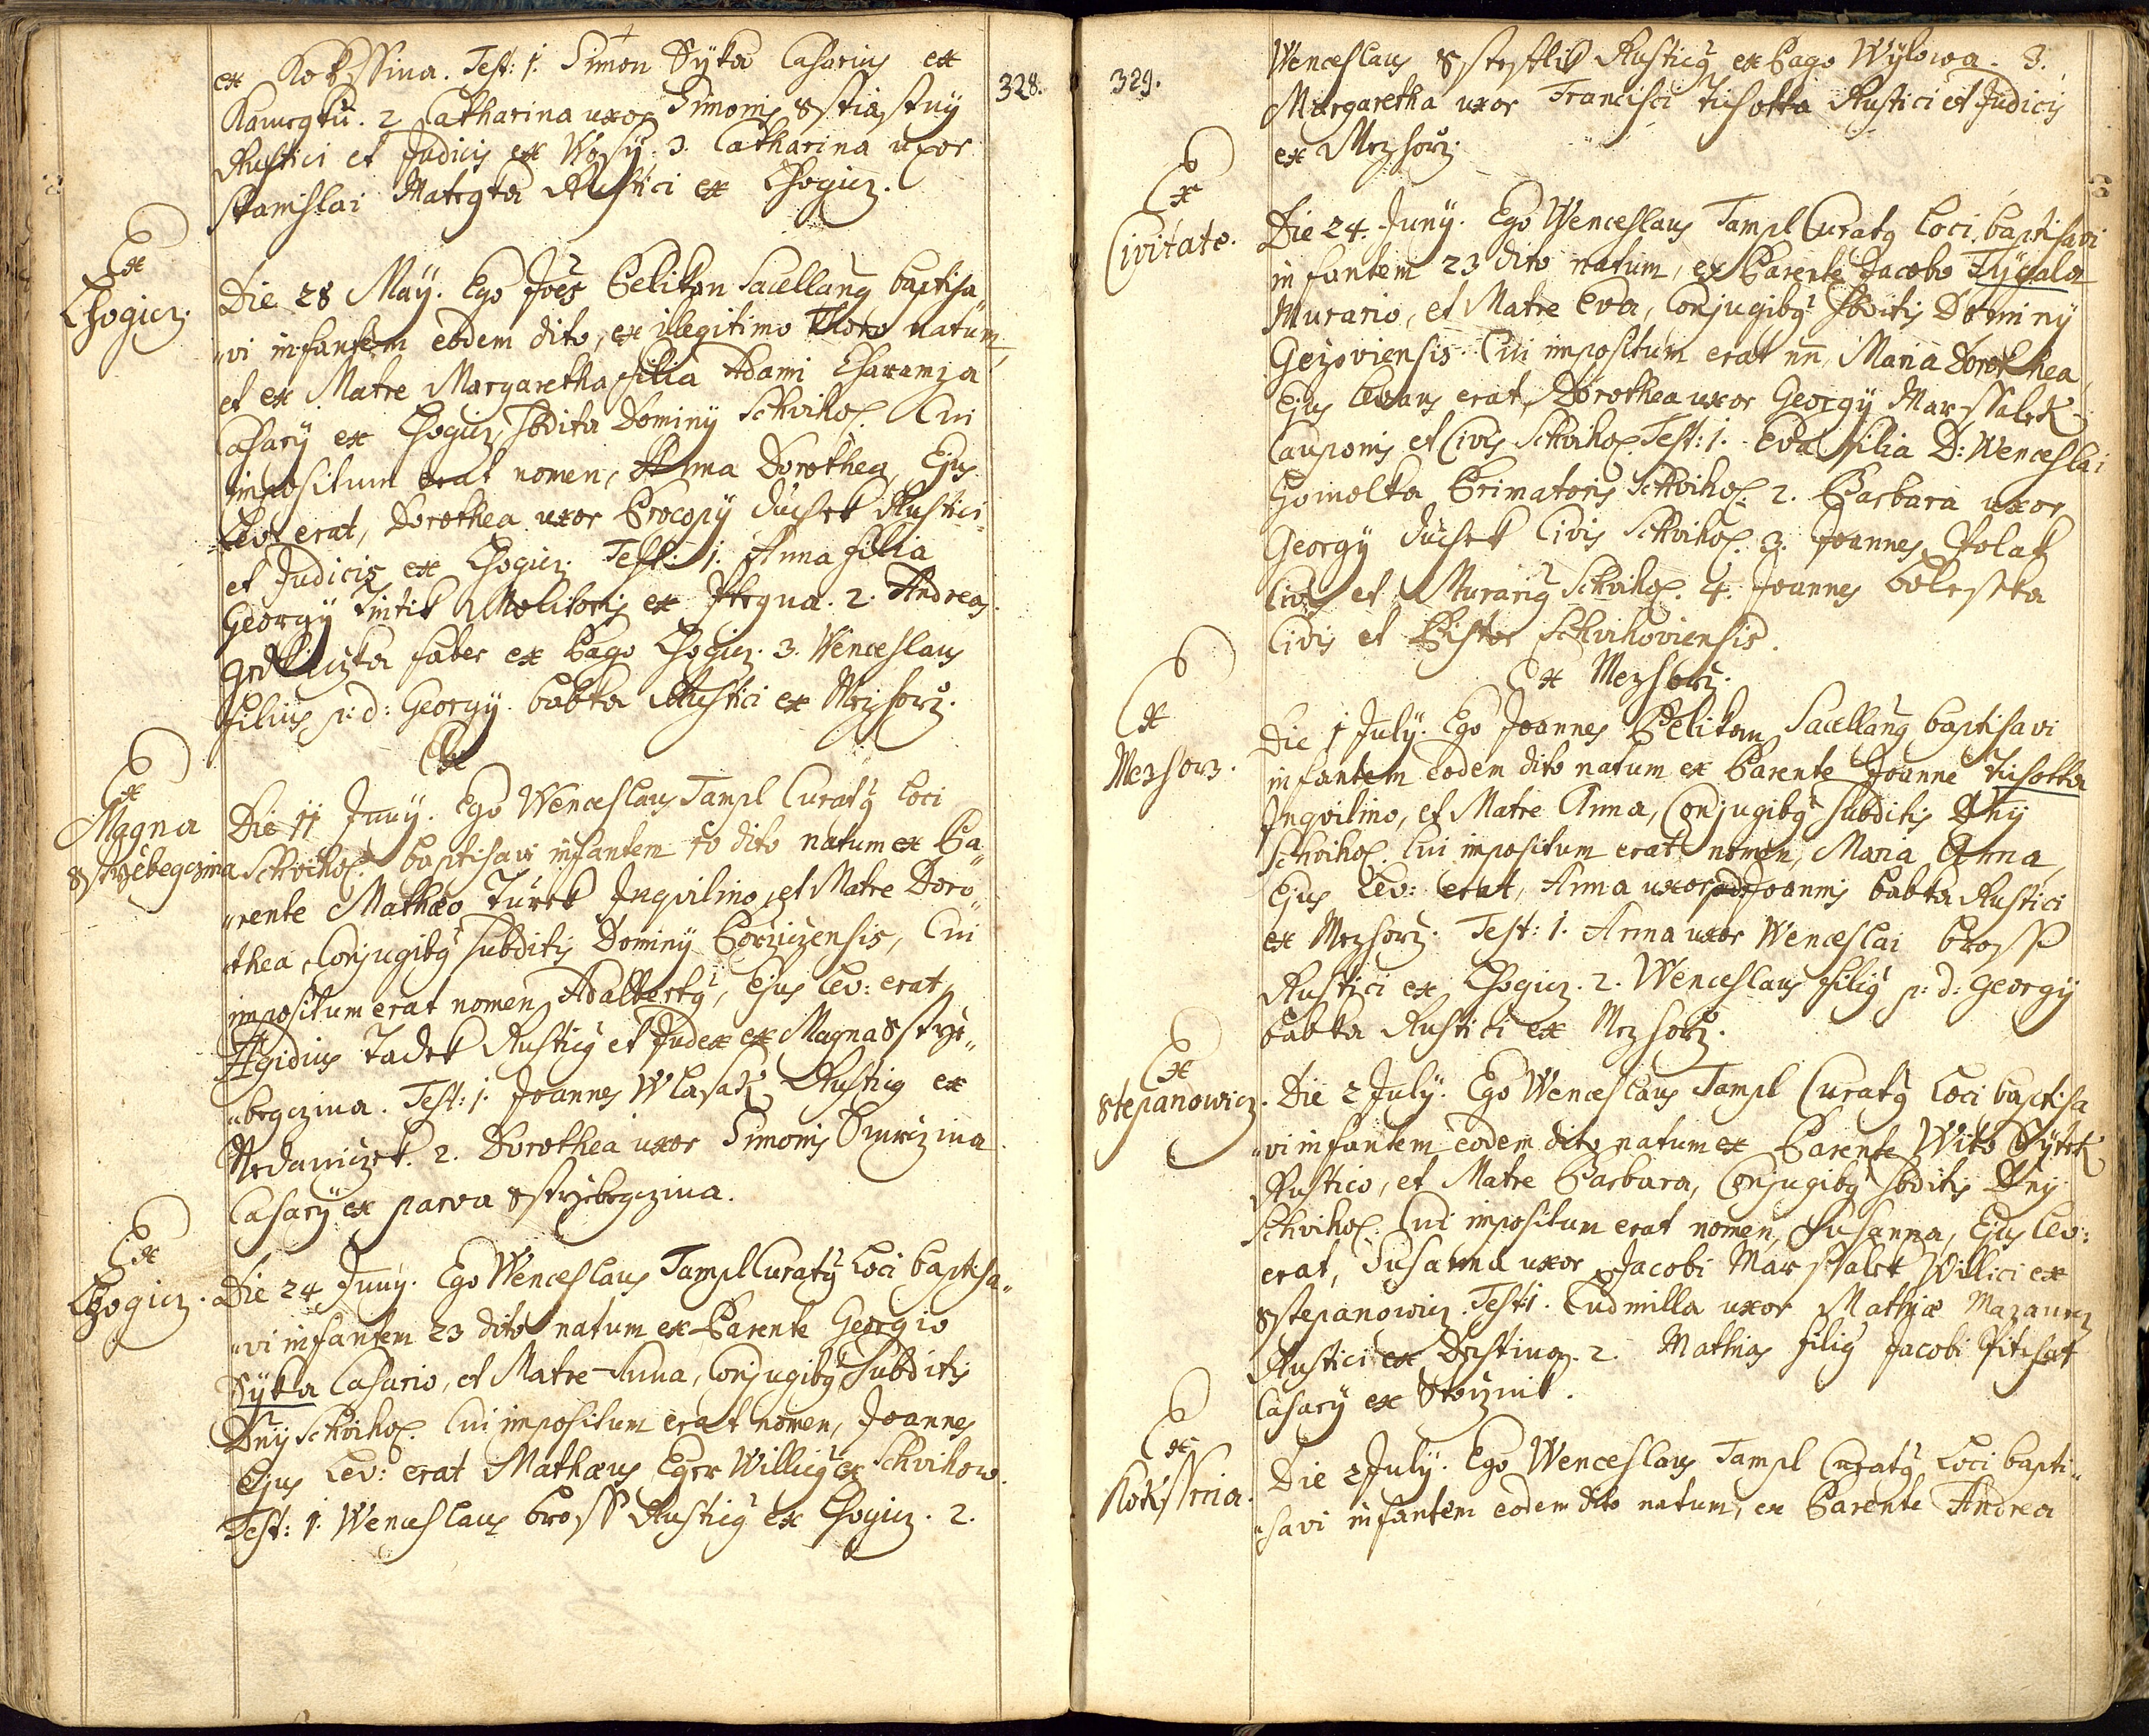 ex Kokssina. Test: 1. Simon Syka Casarius ex
328.
2 Catharina uxor Simonis
Rustici et Judicis ex Wosy. 3. Catharina uxor
Stanislai Mategka Rustici ex Chogicz.
Ex
Chogicz.
Die 28 May. Ego Joës Pelikan Sacellanq baptisa„
„vi infantem eodem dito, ex illegitimo thoro natum,
et ex Matre Margaretha filia Adami Charamza
Casary ex Chogicz, sbdita Dominy Schviho. Cui
impositum erat nomen, Anna Dorothea, Ejus
Lev: erat, Dorothea uxor Procopy Duchek Rustici
et Judicis ex Chogicz. Test: 1. Anna filia
Georgy Molitoris ex 2. Andreas
faber ex Pago Chogicz. 3. Wenceslaus
filius p: d: Georgy Babka Rustici ex Mezhorz.
Ex
Ex
Magna
Sstrzebegczina
Die 11 Juny. Ego Wenceslaus Tampl Curatq Loci
Schviho. baptisavi infantem 10 dito natum ex Pa„
„rente Mathæo Turek Inqvilino, et Matre Doro„
„thea, Conjugibq subditis Dominy Poriczensis, Cui
impositum erat nomen, Adalbertq, Ejus Lev: erat,
Ægidius Tadek Rusticq et Judex ex Magna Sstrze„
„begczina. Test: 1. Joannes Wlasak Rusticq ex
Nedaniczek. 2. Dorothea uxor Simonis Smrczina
Casary ex parva Sstrzebegczina.
Ex
Chogicz.
Die 24 Juny. Ego Wenceslaus Tampl Curatq Loci baptisa„
„vi infantem 23 dito natum ex Parente Georgio
Syka Casario, et Matre Anna, Conjugibq subditis
Dny Schviho. Cui impositum erat nomen, Joannes
Ejus Lev: erat Mathæus Eger Willicq ex Schvihow.
Test: 1. Wenceslaus Bross Rusticq ex Chogicz. 2.
329.
Wenceslaus Rusticq ex Pago Wylowa. 3.
Margaretha uxor Francisci Tichotka Rustici et Judicis
ex Mezhorz.
Ex
Civitate.
Die 24. Juny. Ego Wenceslaus Tampl Curatq Loci baptisavi
infantem 23 dito natum, ex Parente Jacobo Tyczala
Murario, et Matre Eva, Conjugibq sbditis Dominy
Gezoviensis. Cui impositum erat nn, Maria Dorothea,
Ejus Levans erat, Dorothea uxor Georgy Marssalek
Cauponis et Civis Schviho. Test: 1. Eva filia D: Wenceslai
Homolka Primatoris Schviho. 2. Barbara uxor
Georgy Duchek Civis Schviho. 3. Joannes Polak
Civis et Murariq Schviho. 4. Joannes Boleska
Civis et Pistor Schvihoviensis.
Ex Mezhorz.
Ex
Mezhorz.
Die 1 July. Ego Joannes Pelikan Sacellanq baptisavi
infantem eodem dito natum ex Parente Joanne Tichotka
Inqvilino, et Matre Anna, Conjugibq subditis Dny
Schviho. Cui impositum erat nomen, Maria Anna,
Ejus Lev: erat, Anna uxor p: d: Joannis Babka Rustici
ex Mezhorz. Test: 1. Anna uxor Wenceslai Bross
Rustici ex Chogicz. 2. Wenceslaus filiq p: d: Georgy
Babka Rustici ex Mezhorz.
Ex
Stepanowicz.
Die 2 July. Ego Wenceslaus Tampl Curatq Loci baptisa
„vi infantem eodem dito natum ex Parente Wito Sytek
Rustico, et Matre Barbara, Conjugibq sbditis Dny
Schviho. Cui impositum erat nomen, Susanna, Ejus Lev:
erat, Susanna uxor Jacobi Marssalek Willici ex
Sstepanowicz. Test: 1. Ludmilla uxor Mathiæ Mazanecz
Rustici ex 2. Mathias filiq Jacobi
Casary ex
Ex
Kokssina.
Die 2 July. Ego Wenceslaus Tampl Curatq Loci bapti„
„savi infantem eodem dito natum, ex Parente Andrea